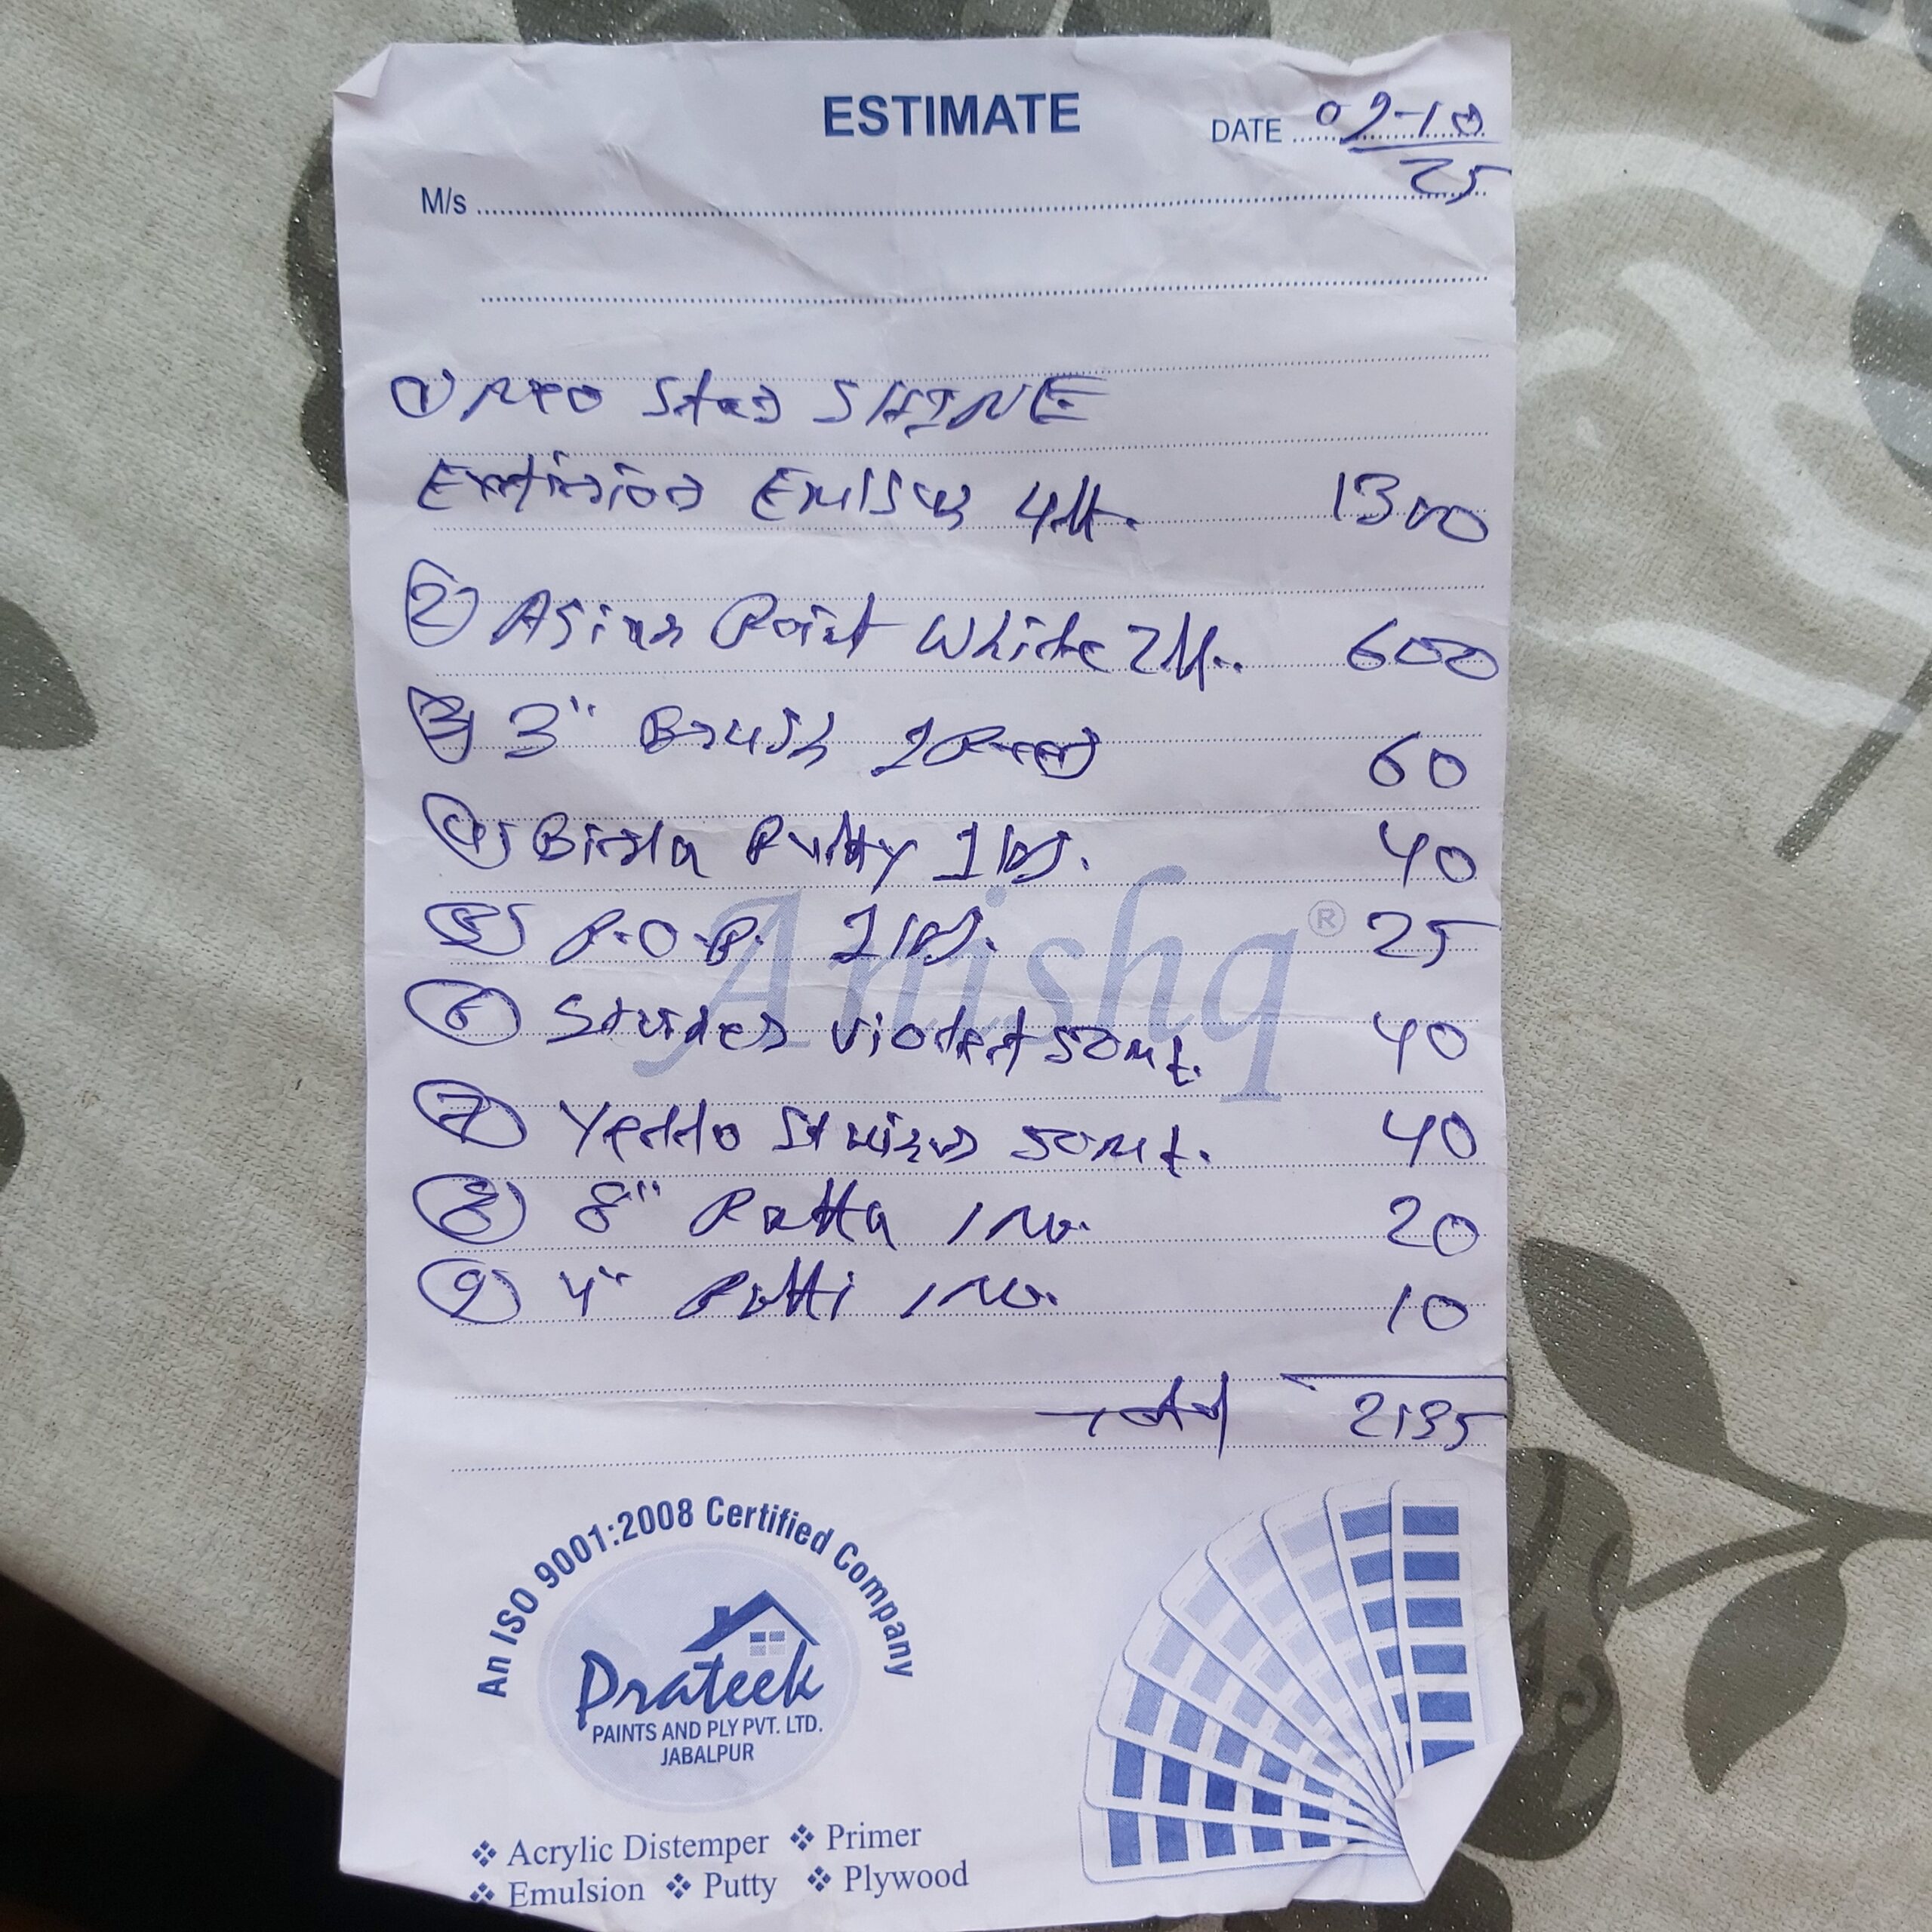 ESTIMATE
DATE 09-10
25
M/s
① Neo Star SHINE
Extirior Emlson 4 lt. 1300
② Asian Paint White 2 lt. 600
③ 3" Brush 60
④ Birla Putty 1 kg. 40
⑤ P.O.P. 1 kg. 25
⑥ Stainer violet 50 ml. 40
⑦ Yello Stainer 50 ml. 40
⑧ 8" Patta 1 No. 20
⑨ 4" Patti 1 No. 10
Total 2135
Anishq ®
An ISO 9001:2008 Certified Company
Prateek
PAINTS AND PLY PVT. LTD.
JABALPUR
❖ Acrylic Distemper ❖ Primer
❖ Emulsion ❖ Putty ❖ Plywood